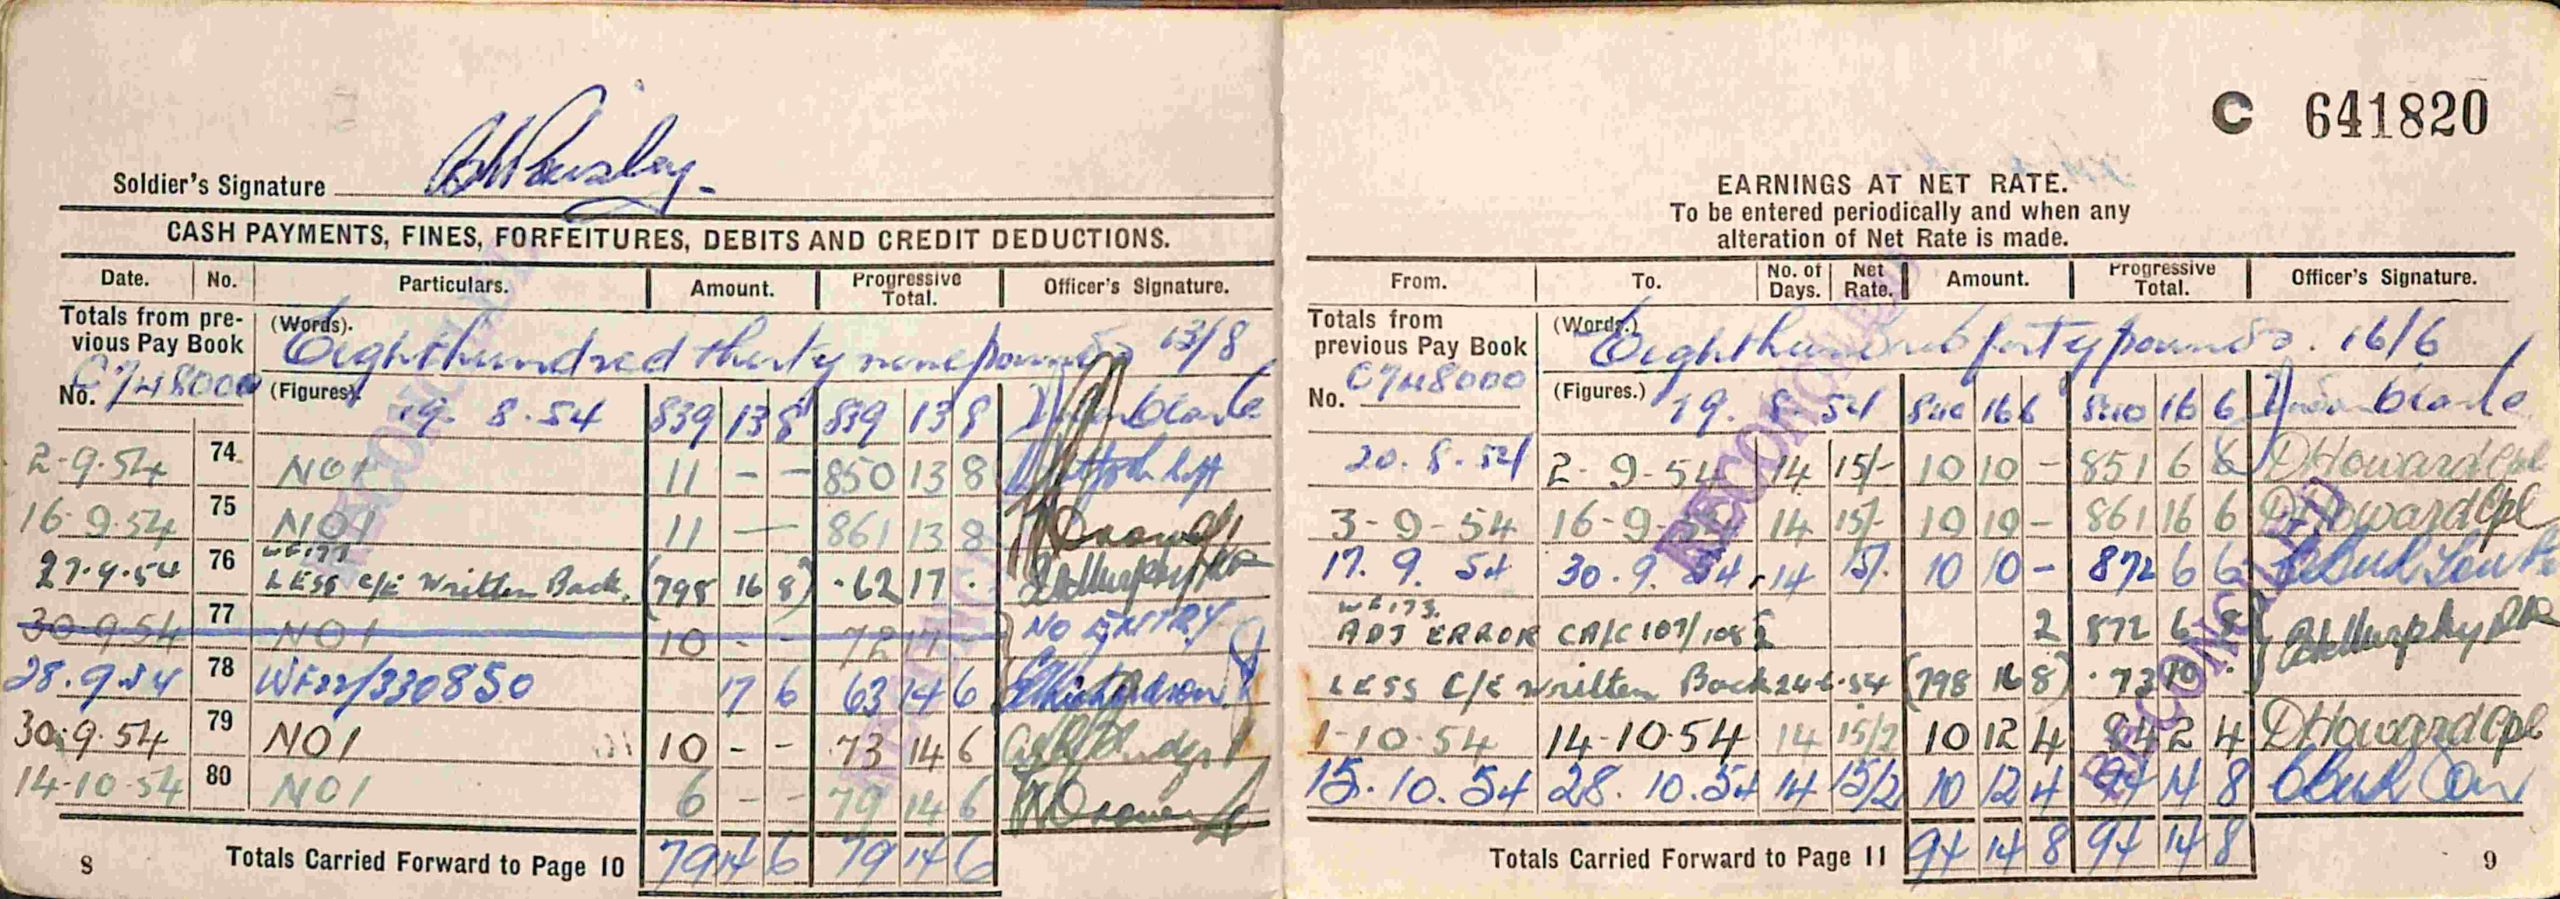 Soldier's Signature
CASH PAYMENTS, FINES, FORFEITURES, DEBITS AND CREDIT DEDUCTIONS.
Date. No. Particulars. Amount. Progressive Total. Officer's Signature.
Totals from previous Pay Book (Words). Eight hundred thirty nine pounds 13/8
No. C748000 (Figures). 19. 8. 54 839 13 8 839 13 8
2-9-54 74 NO1 11 - - 850 13 8
16-9-54 75 NO1 11 - 861 13 8
27.9.54 76 WF173 LESS C/E Written Back. (798 16 8) .62 17 .
30-9-54 77 NO1 10 - - 72 17 - NO ENTRY
28.9.54 78 WF22/330850 17 6 63 14 6
30.9.54 79 NO1 10 - - 73 14 6
14-10-54 80 NO1 6 - - 79 14 6
8 Totals Carried Forward to Page 10 79 14 6 79 14 6
C 641820
EARNINGS AT NET RATE.
To be entered periodically and when any
alteration of Net Rate is made.
From. To. No. of Days. Net Rate. Amount. Progressive Total. Officer's Signature.
Totals from previous Pay Book (Words.) Eight hundred forty pounds. 16/6
No. C748000 (Figures.) 19. 8. 54 840 16 6 840 16 6
20.8.54 2-9-54 14 15/- 10 10 - 851 6 6 D Howard Cpl
3-9-54 16-9-54 14 15/- 10 10 - 861 16 6 D Howard Cpl
17. 9. 54 30.9.54. 14 15/. 10 10 - 872 6 6
WF173. ADJ ERROR CA/C 107/108 2 872 6 8
LESS C/E Written Back 24-6-54 (798 16 8) .73 10 .
1-10-54 14-10-54 14 15/2 10 12 4 84 2 4 D Howard Cpl
15.10.54 28.10.54 14 15/2 10 12 4 94 14 8
Totals Carried Forward to Page 11 94 14 8 94 14 8 9